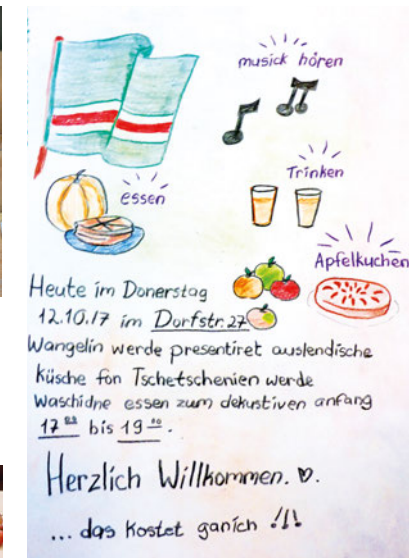 musick hören
Trinken
essen
Apfelkuchen
Heute im Donerstag
12.10.17 im Dorfstr. 27
Wangelin werde presentiret auslendische
Küsche fon Tschetschenien werde
waschidne essen zum dekustiven anfang
17 00 bis 19 00.
Herzlich Willkommen. ♡.
... das kostet ganich !!!